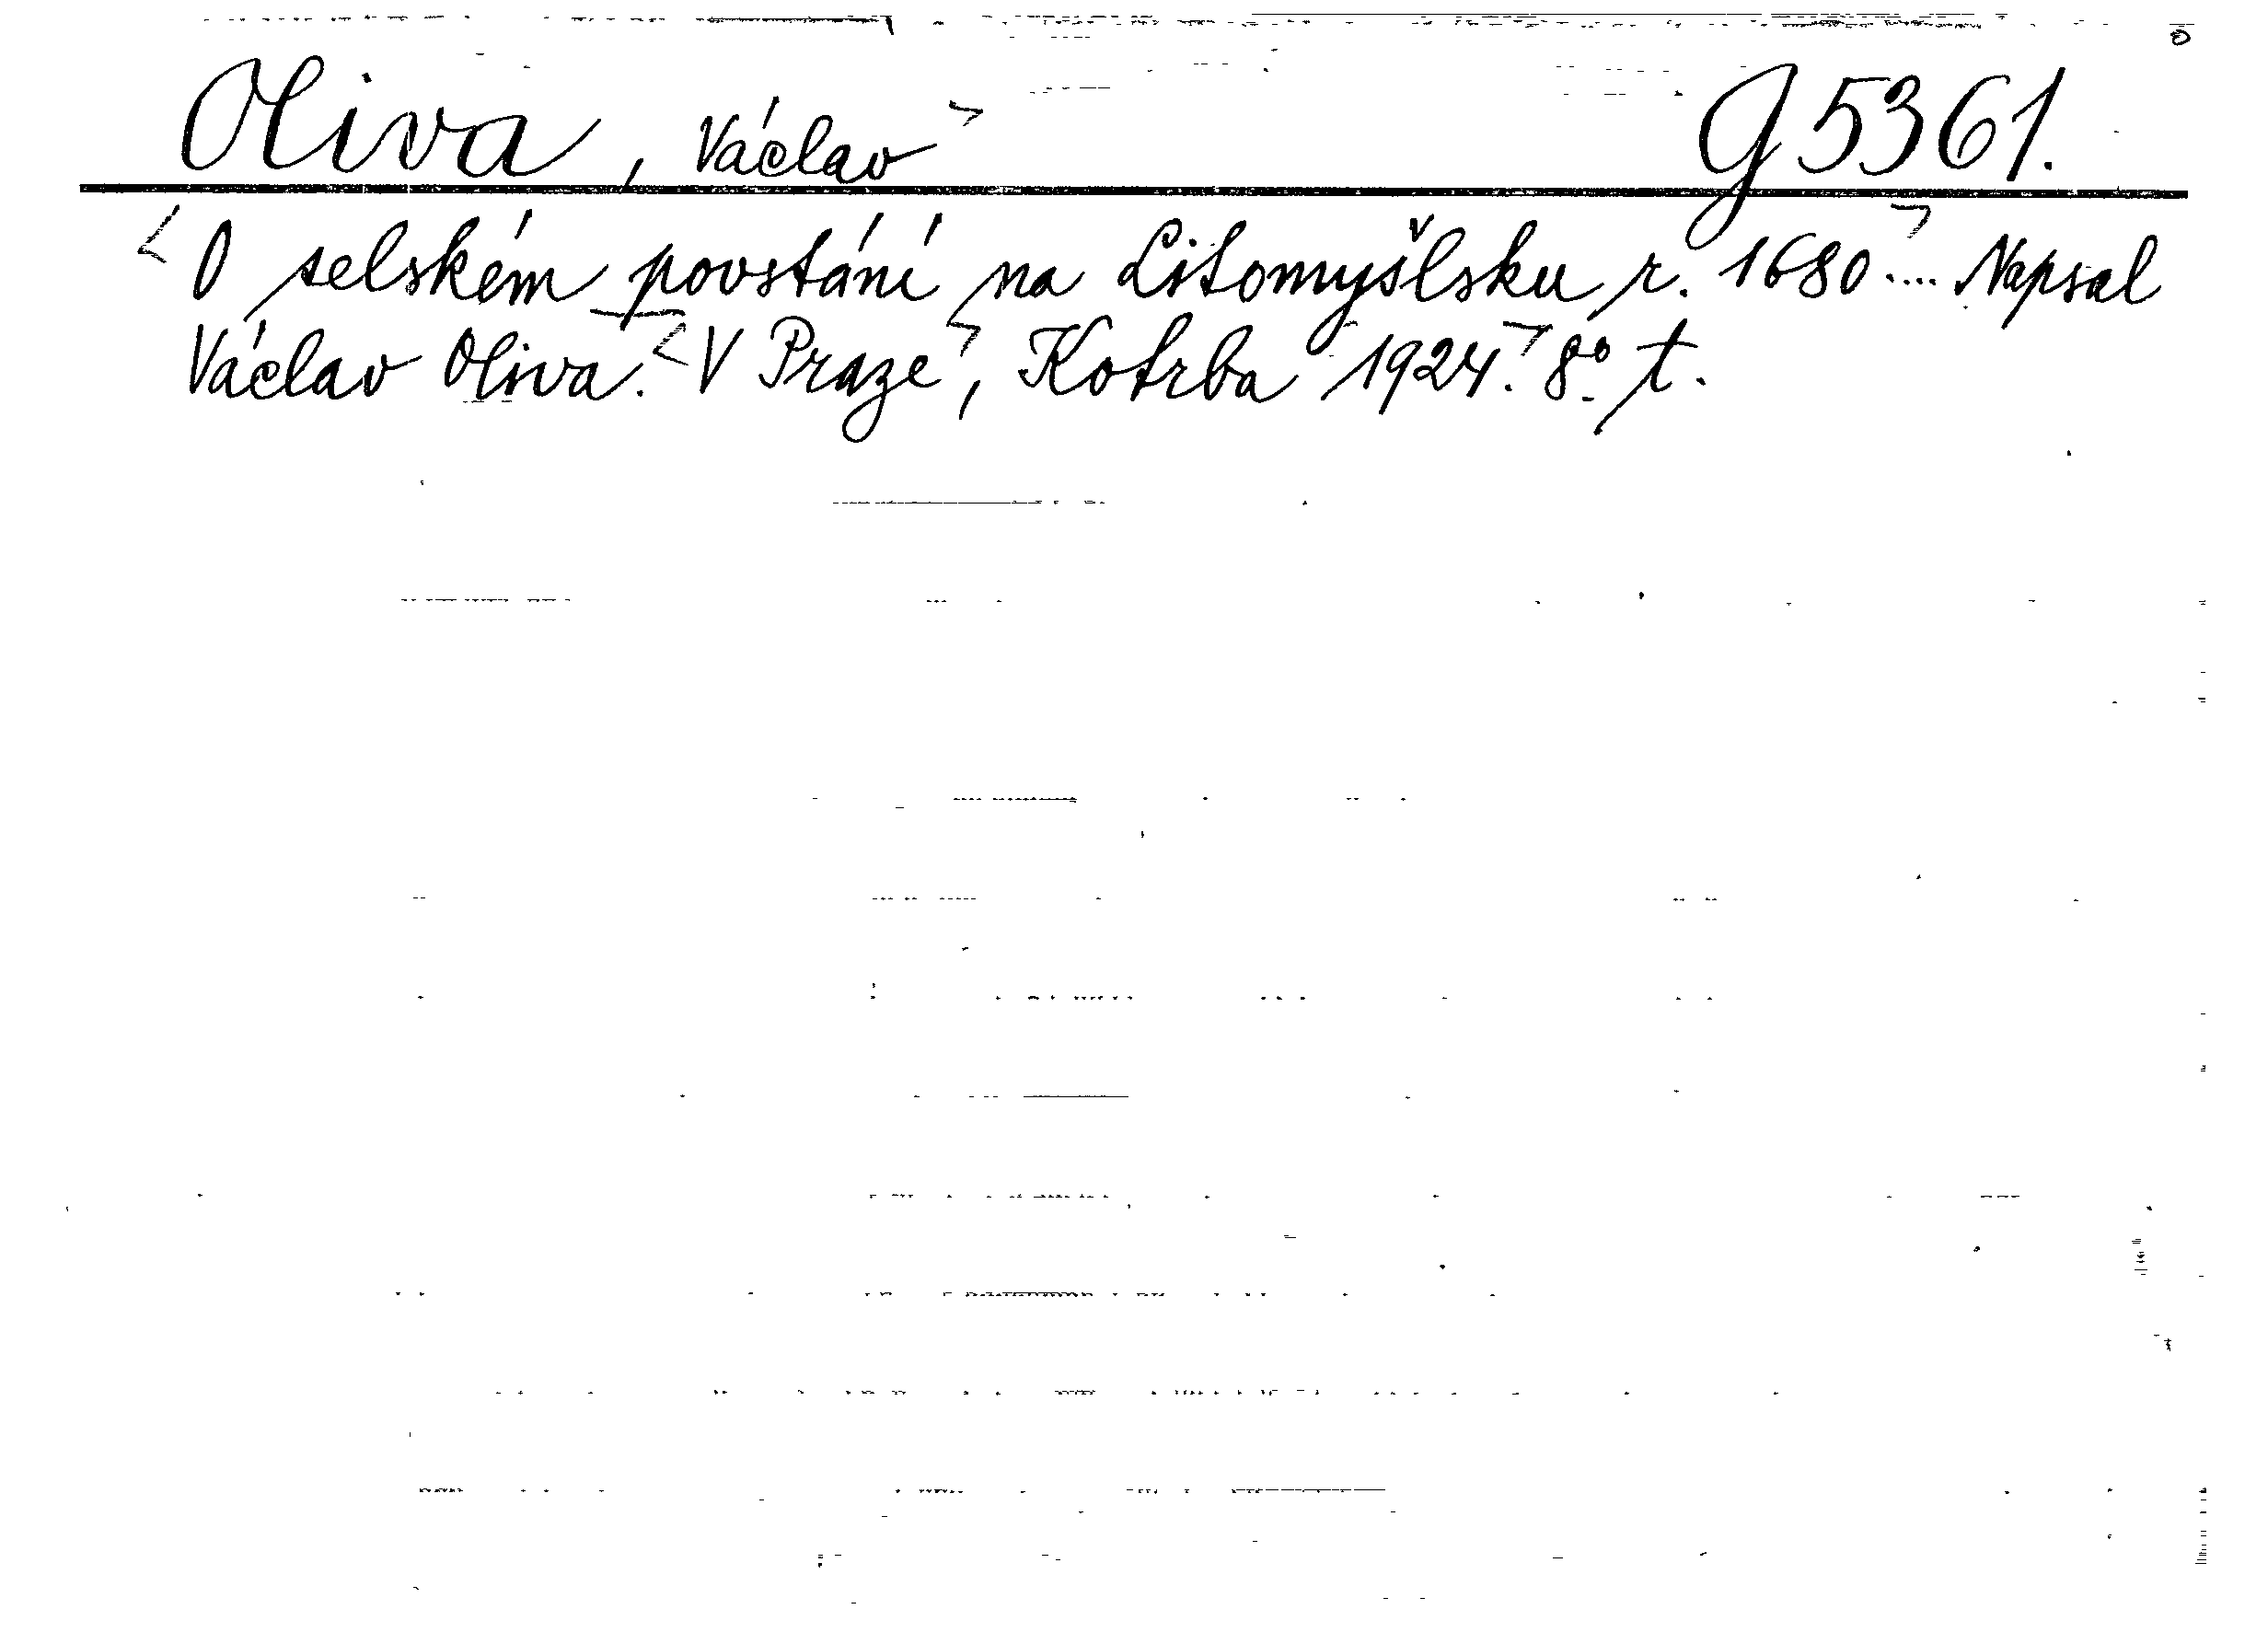 Oliva, Václav> G 5361.
<O selském povstání na Litomyšlsku r. 1680>.... Napsal
Václav Oliva. <V Praze>, Kotrba 1924.> 8° t.